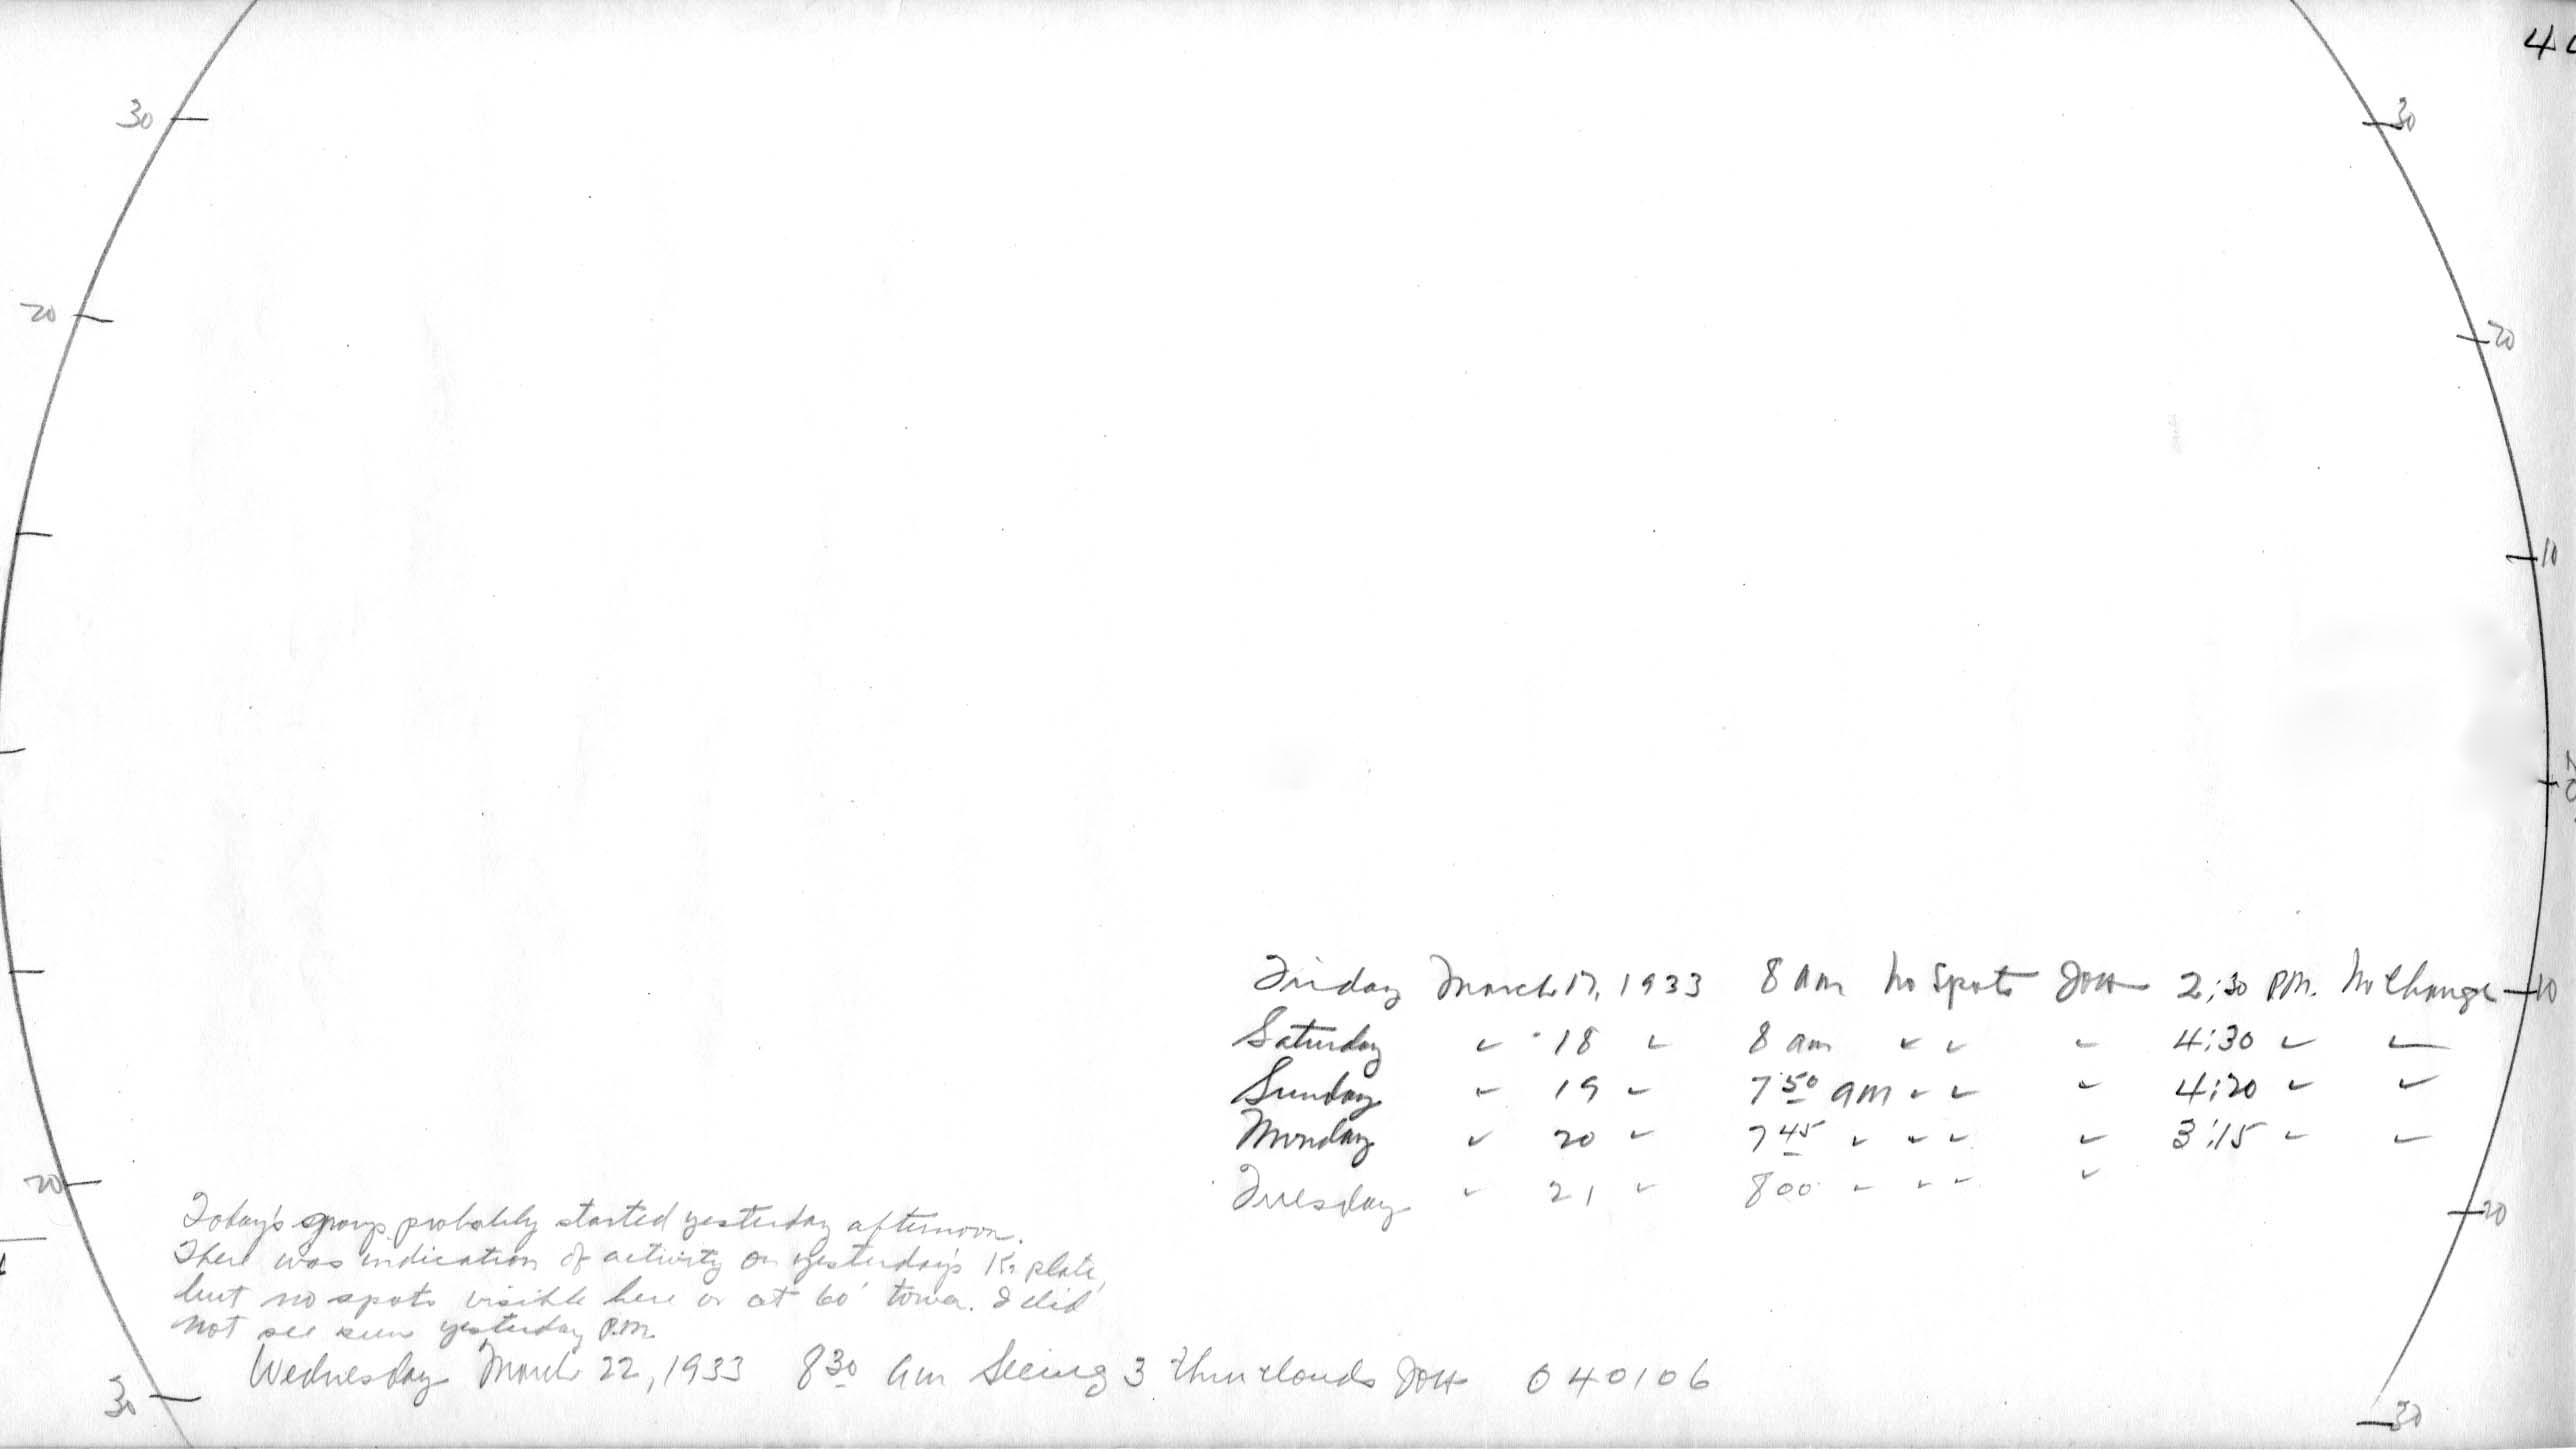 30
30
20
20
10
Friday March 17, 1933 8 am No Spots JOH 2:30 P.M. No Change 10
Saturday " 18 " 8 am " " " 4:30 " "
Sunday " 19 " 7 50 am " " " 4:20 " "
Monday " 20 " 7 45 " " " " 3:15 " "
Tuesday " 21 " 8 00 " " " "
20
20
Today's group probably started yesterday afternoon.
There was indication of activity on yesterday's K2 plate,
but no spots visible here or at 60' tower. I did
not see sun yesterday P.M.
Wednesday March 22, 1933 8 30 am Seeing 3 thru clouds JOH 040106
30
30